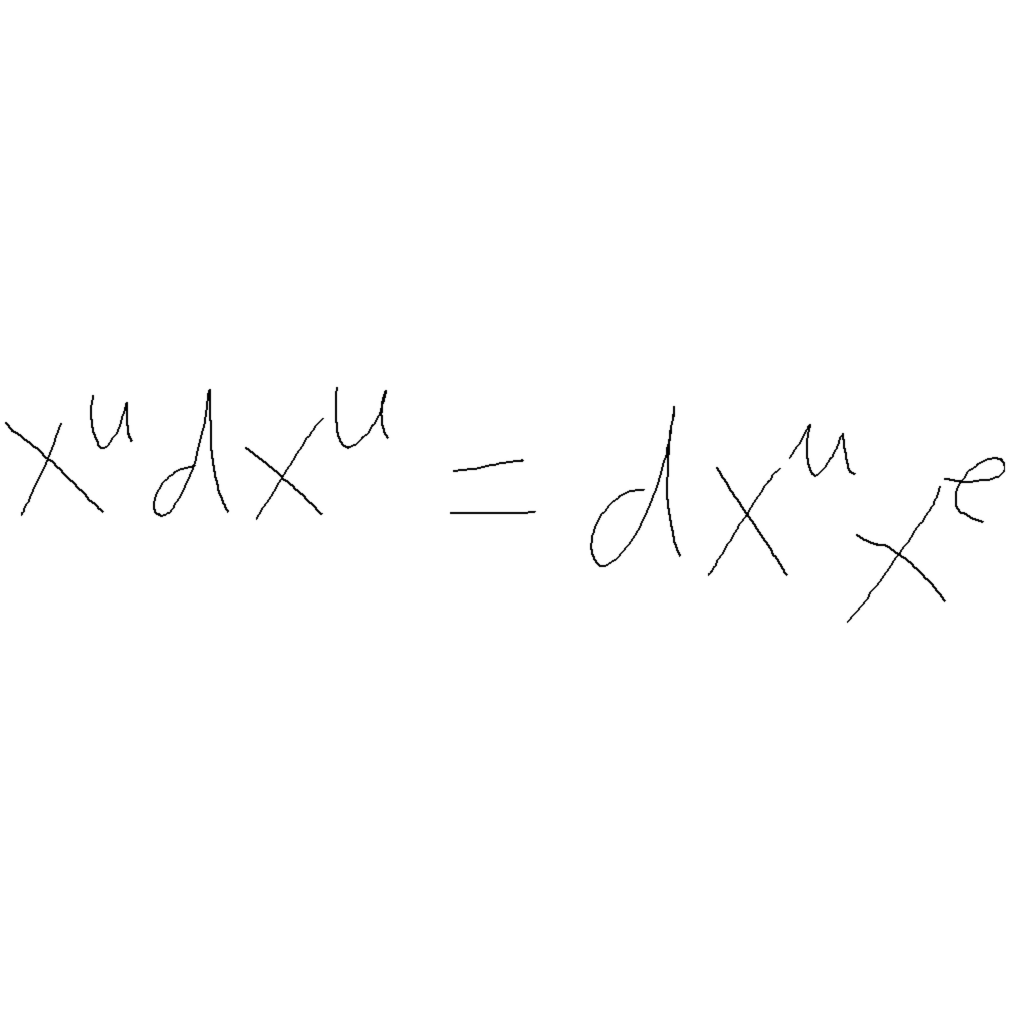 x^u d x^u = d x^u x^e